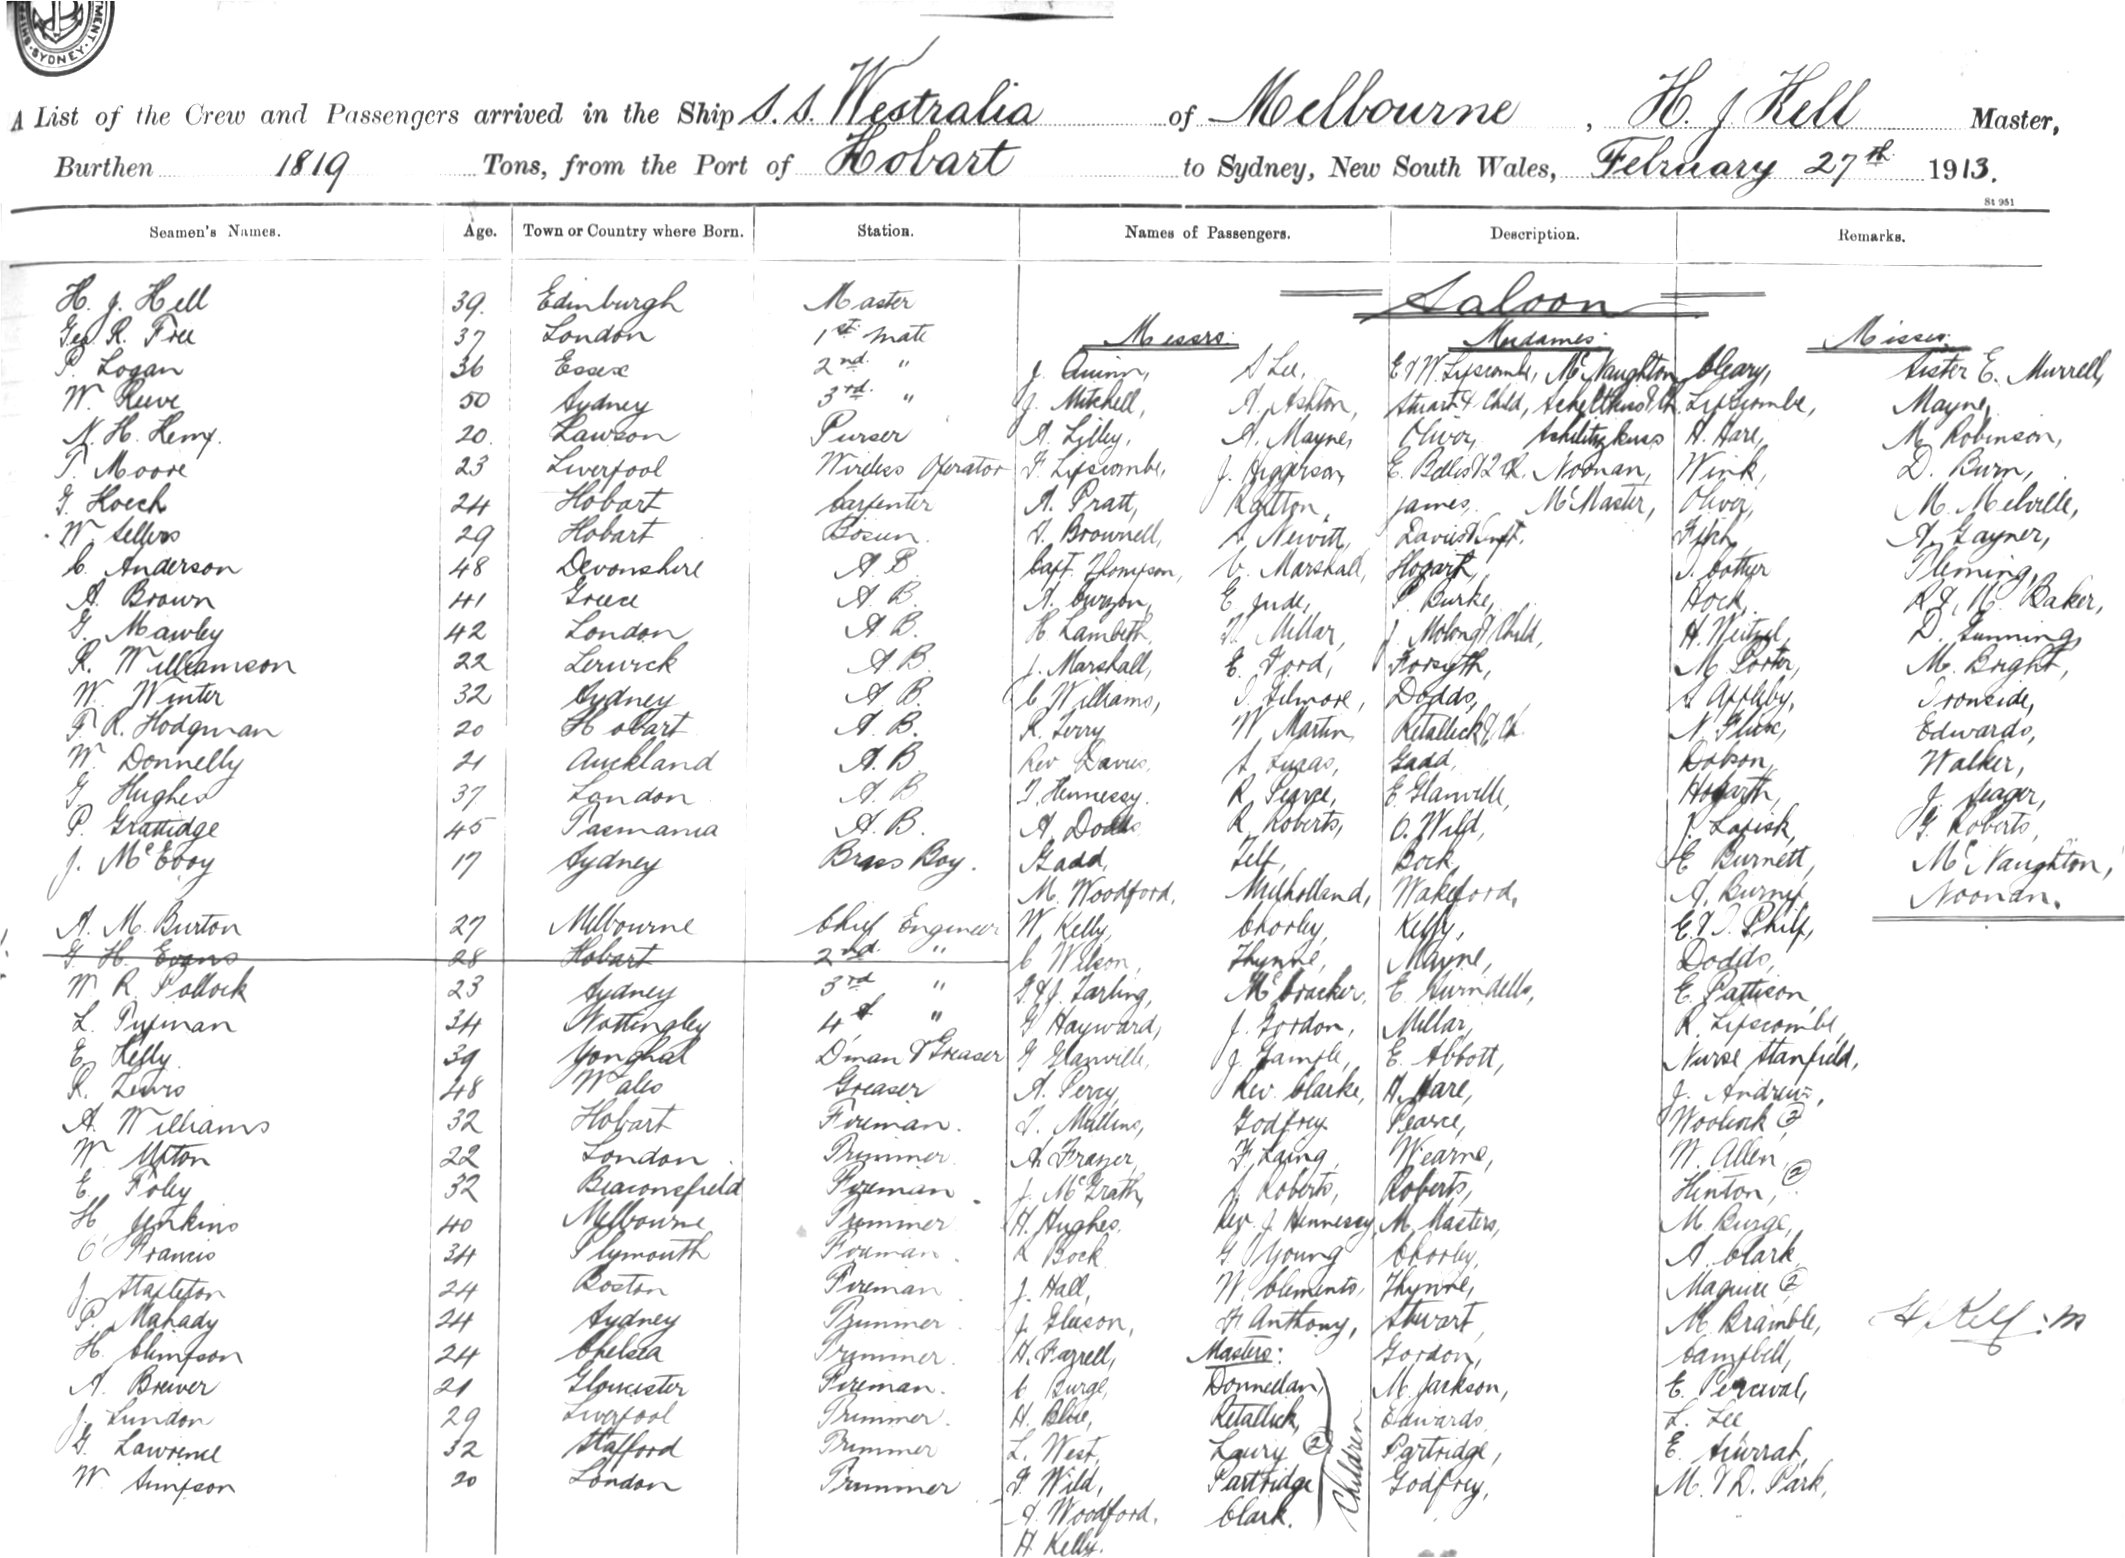 SYDNEY
A List of the Crew and Passengers arrived in the Ship S.S. Westralia of Melbourne, H. J Kell Master,
Burthen 1819 Tons, from the Port of Hobart to Sydney, New South Wales, February 27th 1913.
St 951
Seamen's Names. Age. Town or Country where Born. Station. Names of Passengers. Description. Remarks.
Saloon
H. J. Kell 39. Edinburgh Master
Geo R. Free 37 London 1st mate Messrs. Mesdames. Misses
P. Logan 36 Essex 2nd " J. Quinn, S Lee, E & W. Lipscombe, McNaughton O'Geary, Sister E. Murrell,
W. Reeve 50 Sydney 3rd " J. Mitchell, A. Ashton, Stuart & Child, Lipscombe, Mayne,
N. H. Kemp. 20. Lawson Purser A. Lilley, A. Mayne, Oliver, H. Hare, M. Robinson,
T. Moore 23 Liverpool Wireless Operator F. Lipscombe, J. Higgerson, E. Bellis & 2 Ch. Noonan, Wink, D. Burn,
G. Koech 24 Hobart Carpenter A. Pratt, Railton, James, McMaster, Oliver, M. Melville,
W. Sellers 29 Hobart Bosun. T. Brownell, S Newitt, Davies & Inft. Fitch, A. Gayner,
C. Anderson 48 Devonshire A. B. Capt. Thompson, V. Marshall, Hogarth, Fleming,
A. Brown 41 Greece A. B. A. Curzon, E. Jude, P. Burke, Hock, Baker,
G. Mawley 42 London A B. H Lambeth, Millar, J. Molong & Child, H. Weitzel, D. Gunning,
R. Williamson 22 Lerwick A B. J. Marshall, E. Ford, Forsyth, M. Porter, M. Bright,
W. Winter 32 Sydney A B. C Williams, T. Gilmore, Dodds, S Appleby, Ironside,
F. R. Hodgman 20 Hobart A. B. R. Terry W. Martin, Retallick & Ch. N. Fluse, Edwards,
W. Donnelly 21 Auckland A. B. Rev Davies, S Lucas, Gadd, Dobson, Walker,
G. Hughes 37 London A. B. T Hennessy. R. Pearce, E. Glanville, Hogarth, J. Seager,
P. Grattidge 45 Tasmania A. B. A. Dodds R. Roberts, O. Wild, J. Lapish, G. Roberts,
J. McEvoy 17 Sydney Brass Boy. Gadd, Telf, Bock, E Burnett, McNaughton,
M. Woodford, Mulholland, Wakeford, A. Burney, Noonan.
A. M. Burton 27 Melbourne Chief Engineer W. Kelly, Chorley, Kelly, E. & J. Philp,
G. H. Evans 28 Hobart 2nd " C Wilson, Thynne, Mayne, Dodds,
W. R. Pollock 23 Sydney 3rd " G. & J. Tarling, McCracker, E. Kurndells, E. Pattison
L. Pyman 34 Nottingley 4th " G Hayward, J. Gordon, Millar, R. Lipscombe,
E. Kelly 39 Youghal D'man & Greaser G Glanville, J. Gample, E. Abbott, Nurse Stanfield,
R. Lewis 48 Wales Greaser A. Percy, Rev. Clarke, H. Hare, J. Andrews,
A. Williams 32 Hobart Fireman. T. Mullins, Godfrey Pearce, Woolcock 2
W. Upton 22 London. Trimmer. A. Frazer, F. Laing, Wearne, W. Allen,
E. Foley 32 Beaconsfield Fireman. J. McGrath, S. Roberts, Roberts, Hinton, 2
H. Jenkins 40 Melbourne Trimmer H. Hughes. Rev. J. Hennessy, M. Masters, M. Burge,
C. Francis 34 Plymouth Fireman. Bock G. Young Chorley, A. Clark
J. Stapleton 24 Boston Fireman. J. Hall, W. Clements, Thynne, Maguire 2
P. Mahady 24 Sydney Trimmer. J. Gleeson, F. Anthony, Stewart, M. Bramble, H J Kell : M
H. Climpson 24 Chelsea Trimmer. H. Farrell, Masters: Gordon, Campbell,
A. Brewer 21 Gloucester Fireman. C Burge, Donnellan, M. Jackson, E. Percival,
J. Lundon 29 Liverpool Trimmer. H. Blue, Retallick, Edwards, L. Lee
G. Lawrence 32 Stafford Trimmer L. West, Laury 2 Children Partridge, E.
W. Simpson 20 London Trimmer F. Wild, Partridge Godfrey, M. & D. Park,
A Woodford, Clark.
H. Kelly.